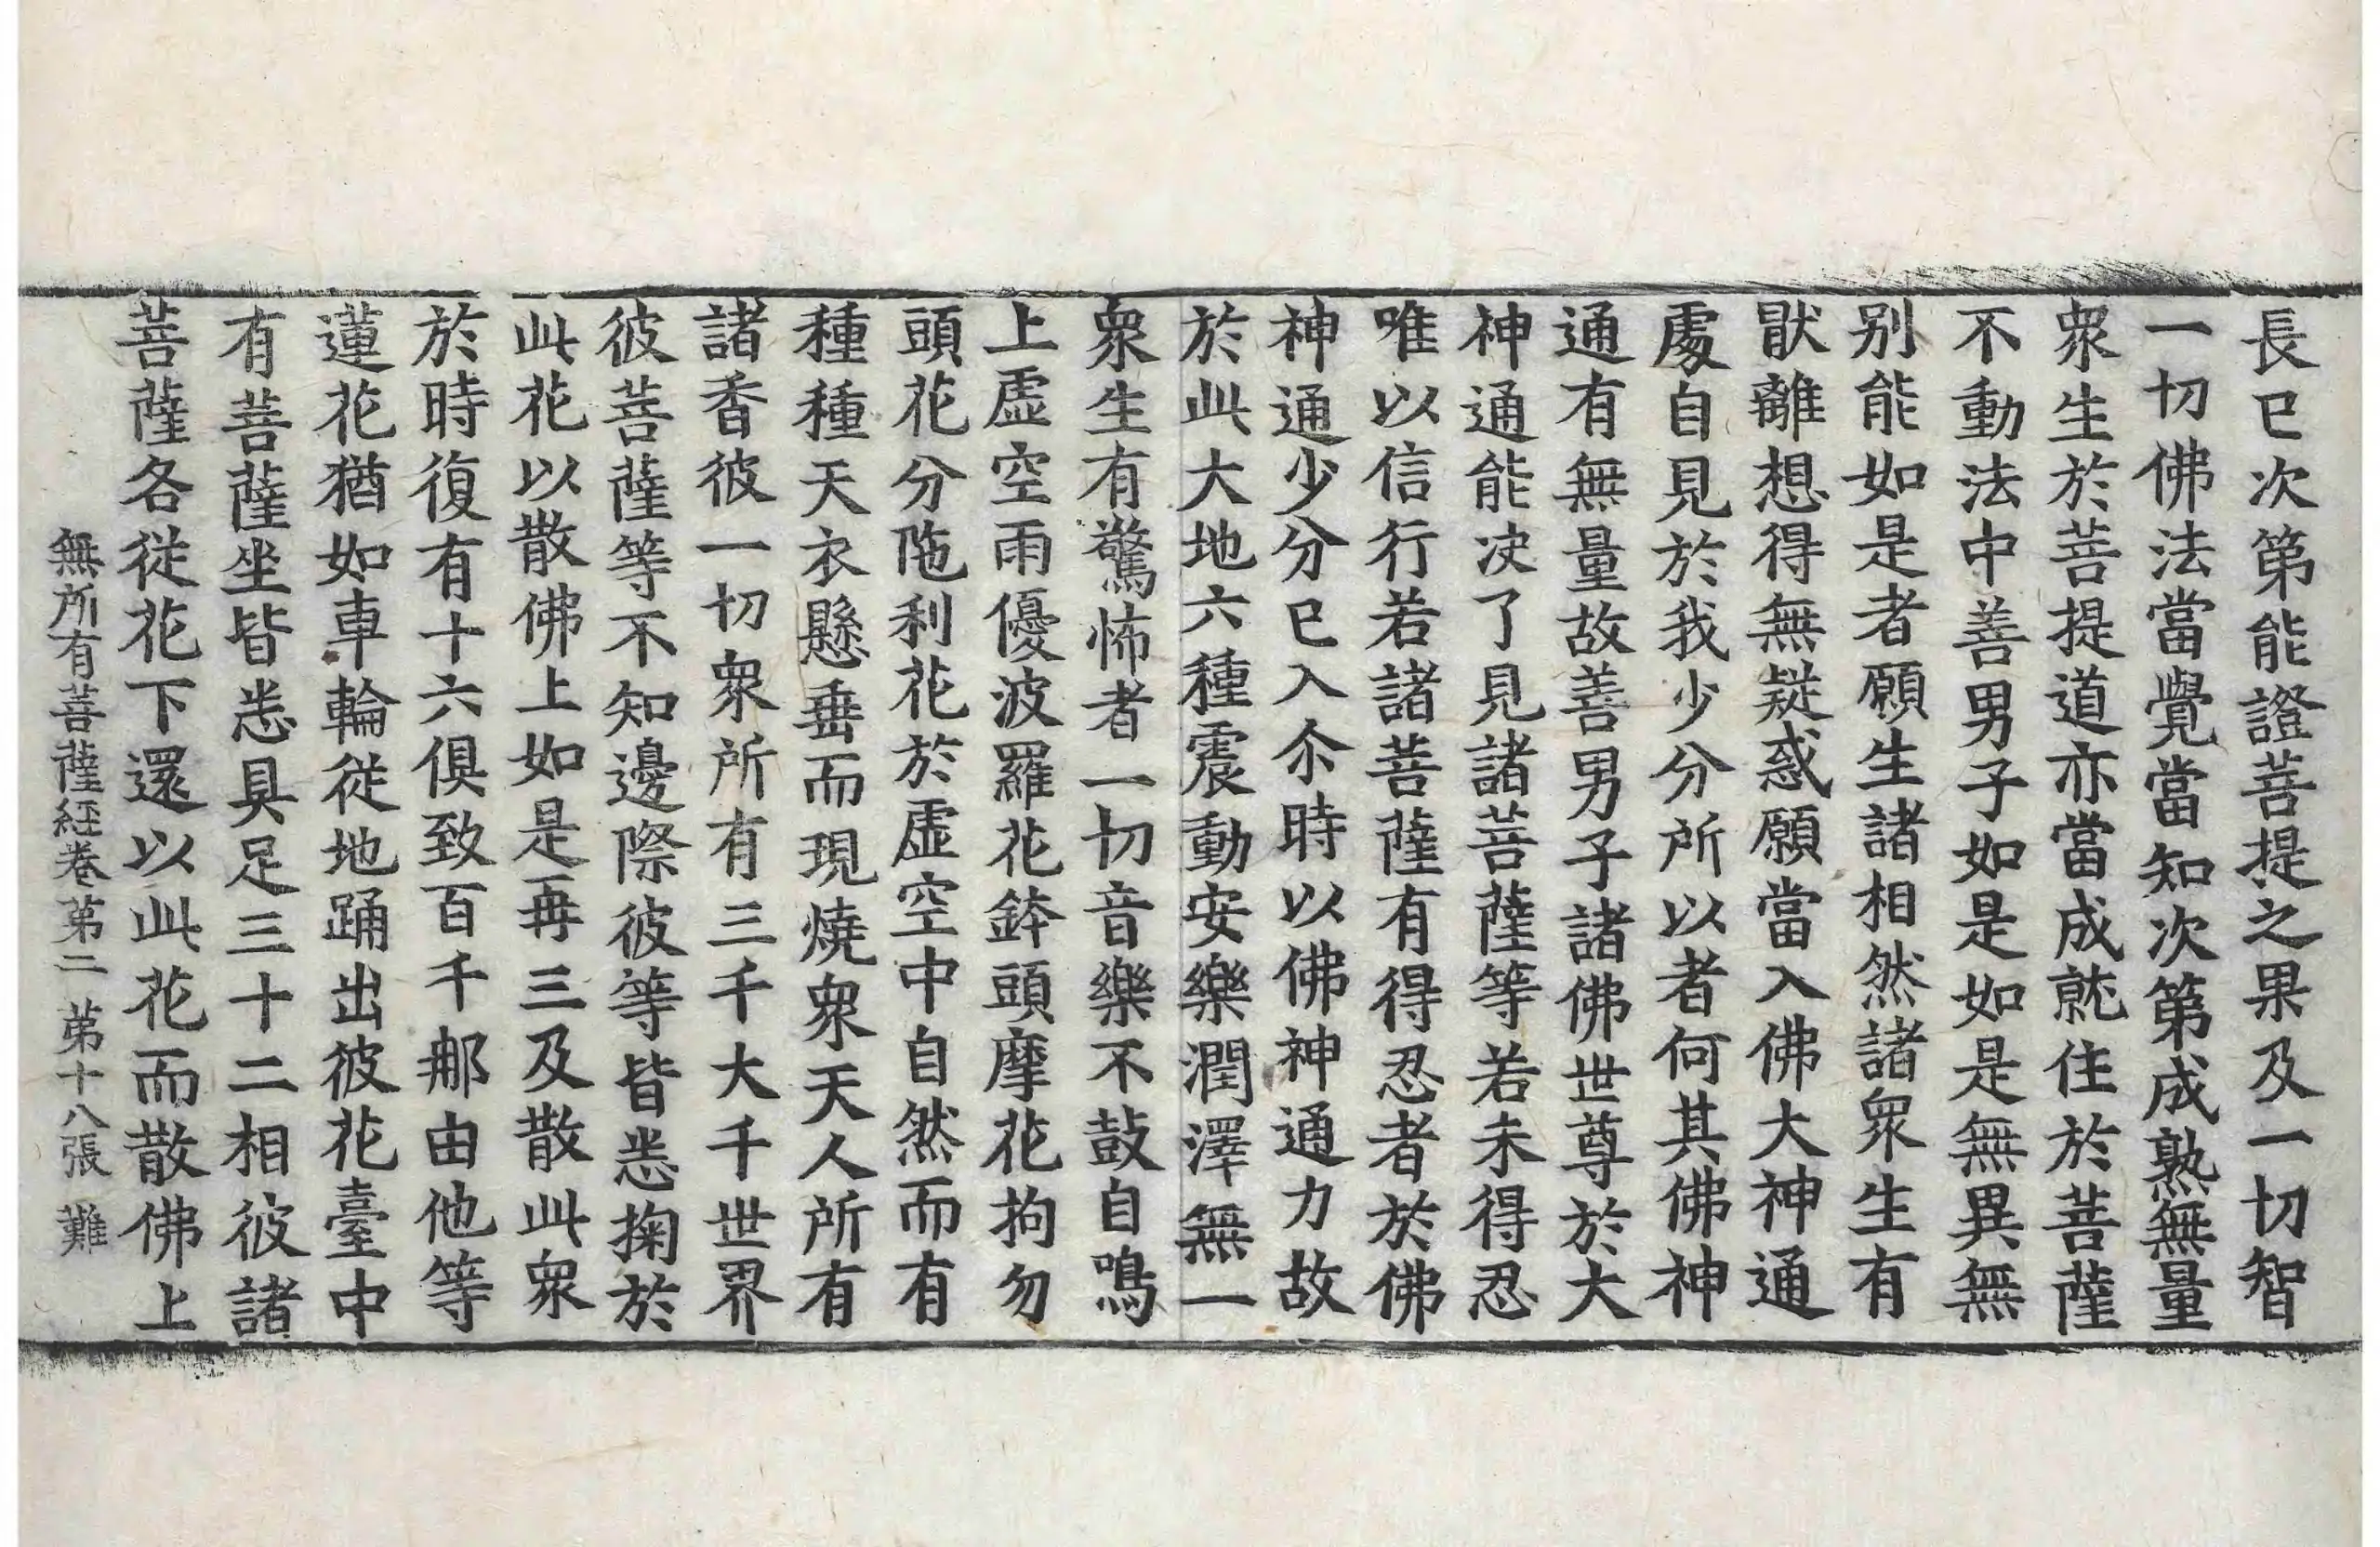 長已次第能證菩提之果及一切智
一切佛法當覺當知次第成熟無量
衆生於菩提道亦當成就住於菩薩
不動法中善男子如是如是無異無
别能如是者願生諸相然諸衆生有
猒離想得無疑惑願當入佛大神通
處自見於我少分所以者何其佛神
通有無量故善男子諸佛世尊於大
神通能决了見諸菩薩等若未得忍
唯以信行若諸菩薩有得忍者於佛
神通少分已入尒時以佛神通力故
於此大地六種震動安樂潤澤無一
衆生有驚怖者一切音樂不鼓自鳴
上虛空雨優波羅花鉢頭摩花拘勿
頭花分陁利花於虛空中自然而有
種種天衣懸垂而現燒衆天人所有
諸香彼一切衆所有三千大千世界
彼菩薩等不知邊際彼等皆悉掬於
此花以散佛上如是再三及散此衆
於時復有十六俱致百千那由他等
蓮花猶如車輪從地踊出彼花臺中
有菩薩坐皆悉具足三十二相彼諸
菩薩各從花下還以此花而散佛上
無所有菩薩經卷第二 第十八張 難